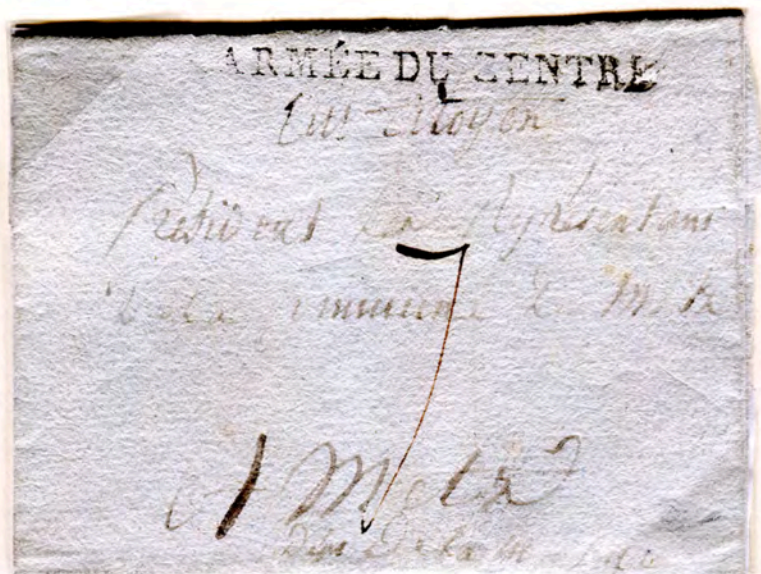 ARMÉE DU CENTRE
Citoyen
Président des Représentant
de la Commune de Metz
7
A Metz